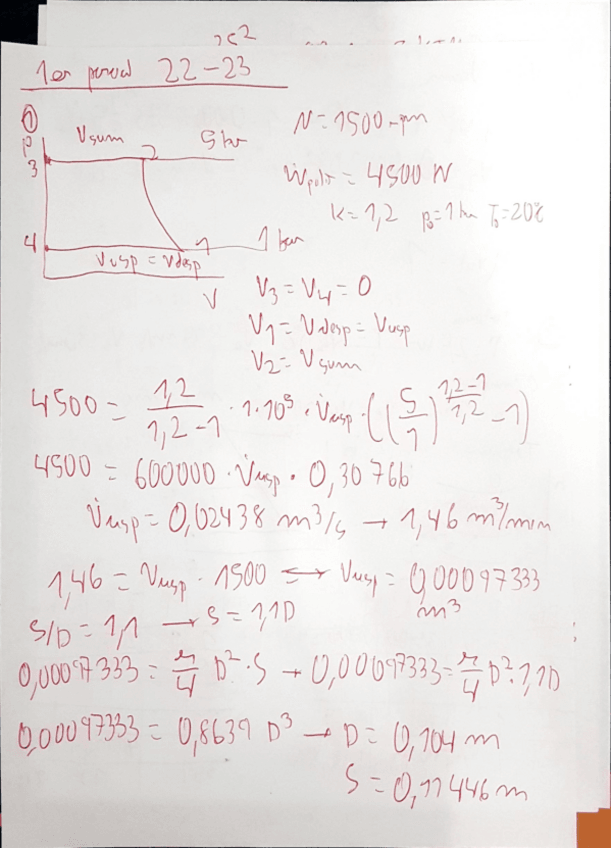 1er parcial 22-23
①
p
Vsum
2
5 bar
N = 1500 rpm
3
Ẇpolit = 4500 W
K = 1,2 p₀ = 1 bar T₀ = 20°C
4
1
1 bar
Vusp = Vdesp
V
V3 = V4 = 0
V1 = Vdesp = Vusp
V2 = Vsum
4500 = 1,2/1,2-1 · 1·10⁵ · V̇usp · ((5/1)^1,2-1/1,2 - 1)
4500 = 600000 · V̇usp · 0,30766
V̇usp = 0,02438 m³/s → 1,46 m³/min
1,46 = Vusp · 1500 ⟺ Vusp = 0,00097333 m³
S/D = 1,1 → S = 1,1D
0,00097333 = π/4 D² · S → 0,00097333 = π/4 D² · 1,1D
0,00097333 = 0,8639 D³ → D = 0,104 m
S = 0,11446 m